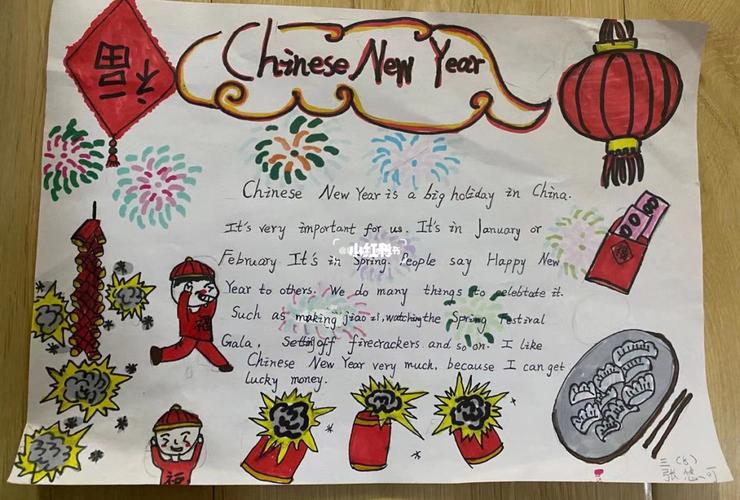 Chinese New Year
福
Chinese New Year is a big holiday in China.
It's very important for us. It's in January or
February It's in Spring. People say Happy New
Year to others. We do many things to celebtate it.
Such as making jiao zi, watching the Spring Festival
Gala, Setting off firecrackers and so on. I like
Chinese New Year very much, because I can get
lucky money.
小红书
福
福
福
三(8)
张悠可